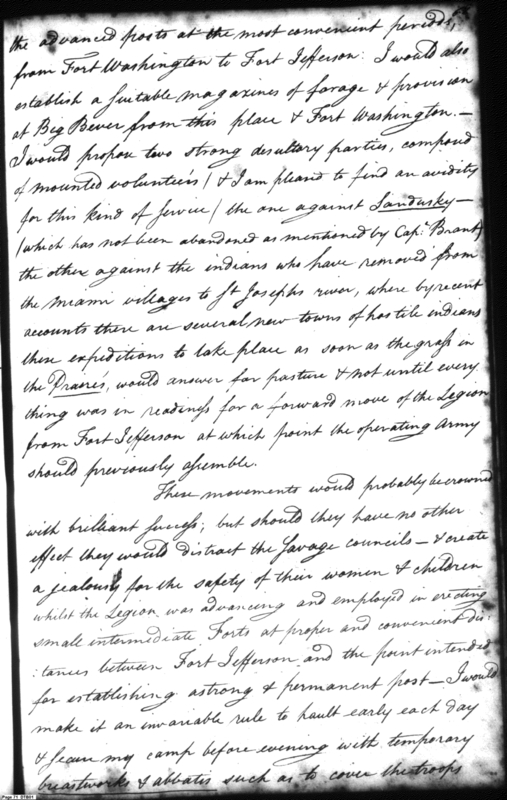 the advanced posts at the most convenient periods,
from Fort Washington to Fort Jefferson: I would also
establish a suitable magazines of forage & provision
at Big Bever from this place & Fort Washington.—
I would propose two strong desultory parties, composed
of mounted volunteers / & I am pleased to find an avidity
for this kind of service / the one against Sandusky—
(which has not been abandoned as mentioned by Capt. Brant)
the other against the indians who have removed from
the Miami villages to St Josephs river, where by recent
accounts there are several new towns of hostile indians
these expeditions to take place as soon as the grass in
the Praries, would answer for pasture & not until every
thing was in readiness for a forward move of the Legion
from Fort Jefferson at which point the operating Army
should previously assemble.
These movements would probably be crowned
with brilliant success; but should they have no other
effect they would distract the savage councils— & create
a jealousy for the safety of their women & children
whilst the Legion was advancing and employed in erecting
small intermediate Forts at proper and convenient dis:
:tances between Fort Jefferson and the point intended
for establishing a strong & permanent post— I would
make it an invariable rule to hault early each day
& secure my camp before evening with temporary
breastworks & abbatis such as to cover the troops
Page 71 D1801